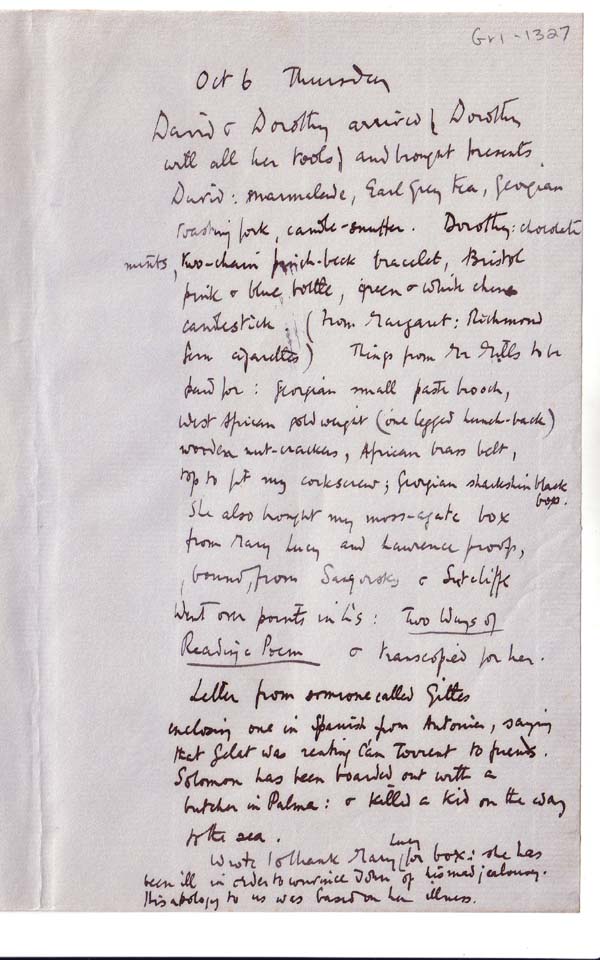 Gr1-1327
Oct 6 Thursday
David & Dorothy arrived ( Dorothy
with all her tools) and brought presents.
David: marmelade, Earl Grey tea, Georgian
toasting fork, candle-snuffer. Dorothy: chocolate
mints, two-chain pinch-beck bracelet, Bristol
pink & blue bottle, green & white china
candlestick. (From Margaret: Richmond
Gem cigarettes) Things from Mr Mills to be
paid for: Georgian small paste brooch,
West African gold weight (one legged hunch-back)
wooden nut-crackers, African brass belt,
top to fit my corkscrew; Georgian sharkskin black
box.
She also brought my moss-agate box
from Mary Lucy and Lawrence proofs,
bound, from Sangorsky & Sutcliffe
Went over points in L's: Two Ways of
Reading a Poem & transcopied for her.
Letter from someone called Gittes
enclosing one in Spanish from Antonia, saying
that Gelat was renting Can Torrent to friends.
Solomon has been boarded out with a
butcher in Palma: & killed a kid on the way
to the sea.
Wrote to thank Mary Lucy for box: she has
been ill in order to convince John of his mad jealousy.
His apology to us was based on her illness.